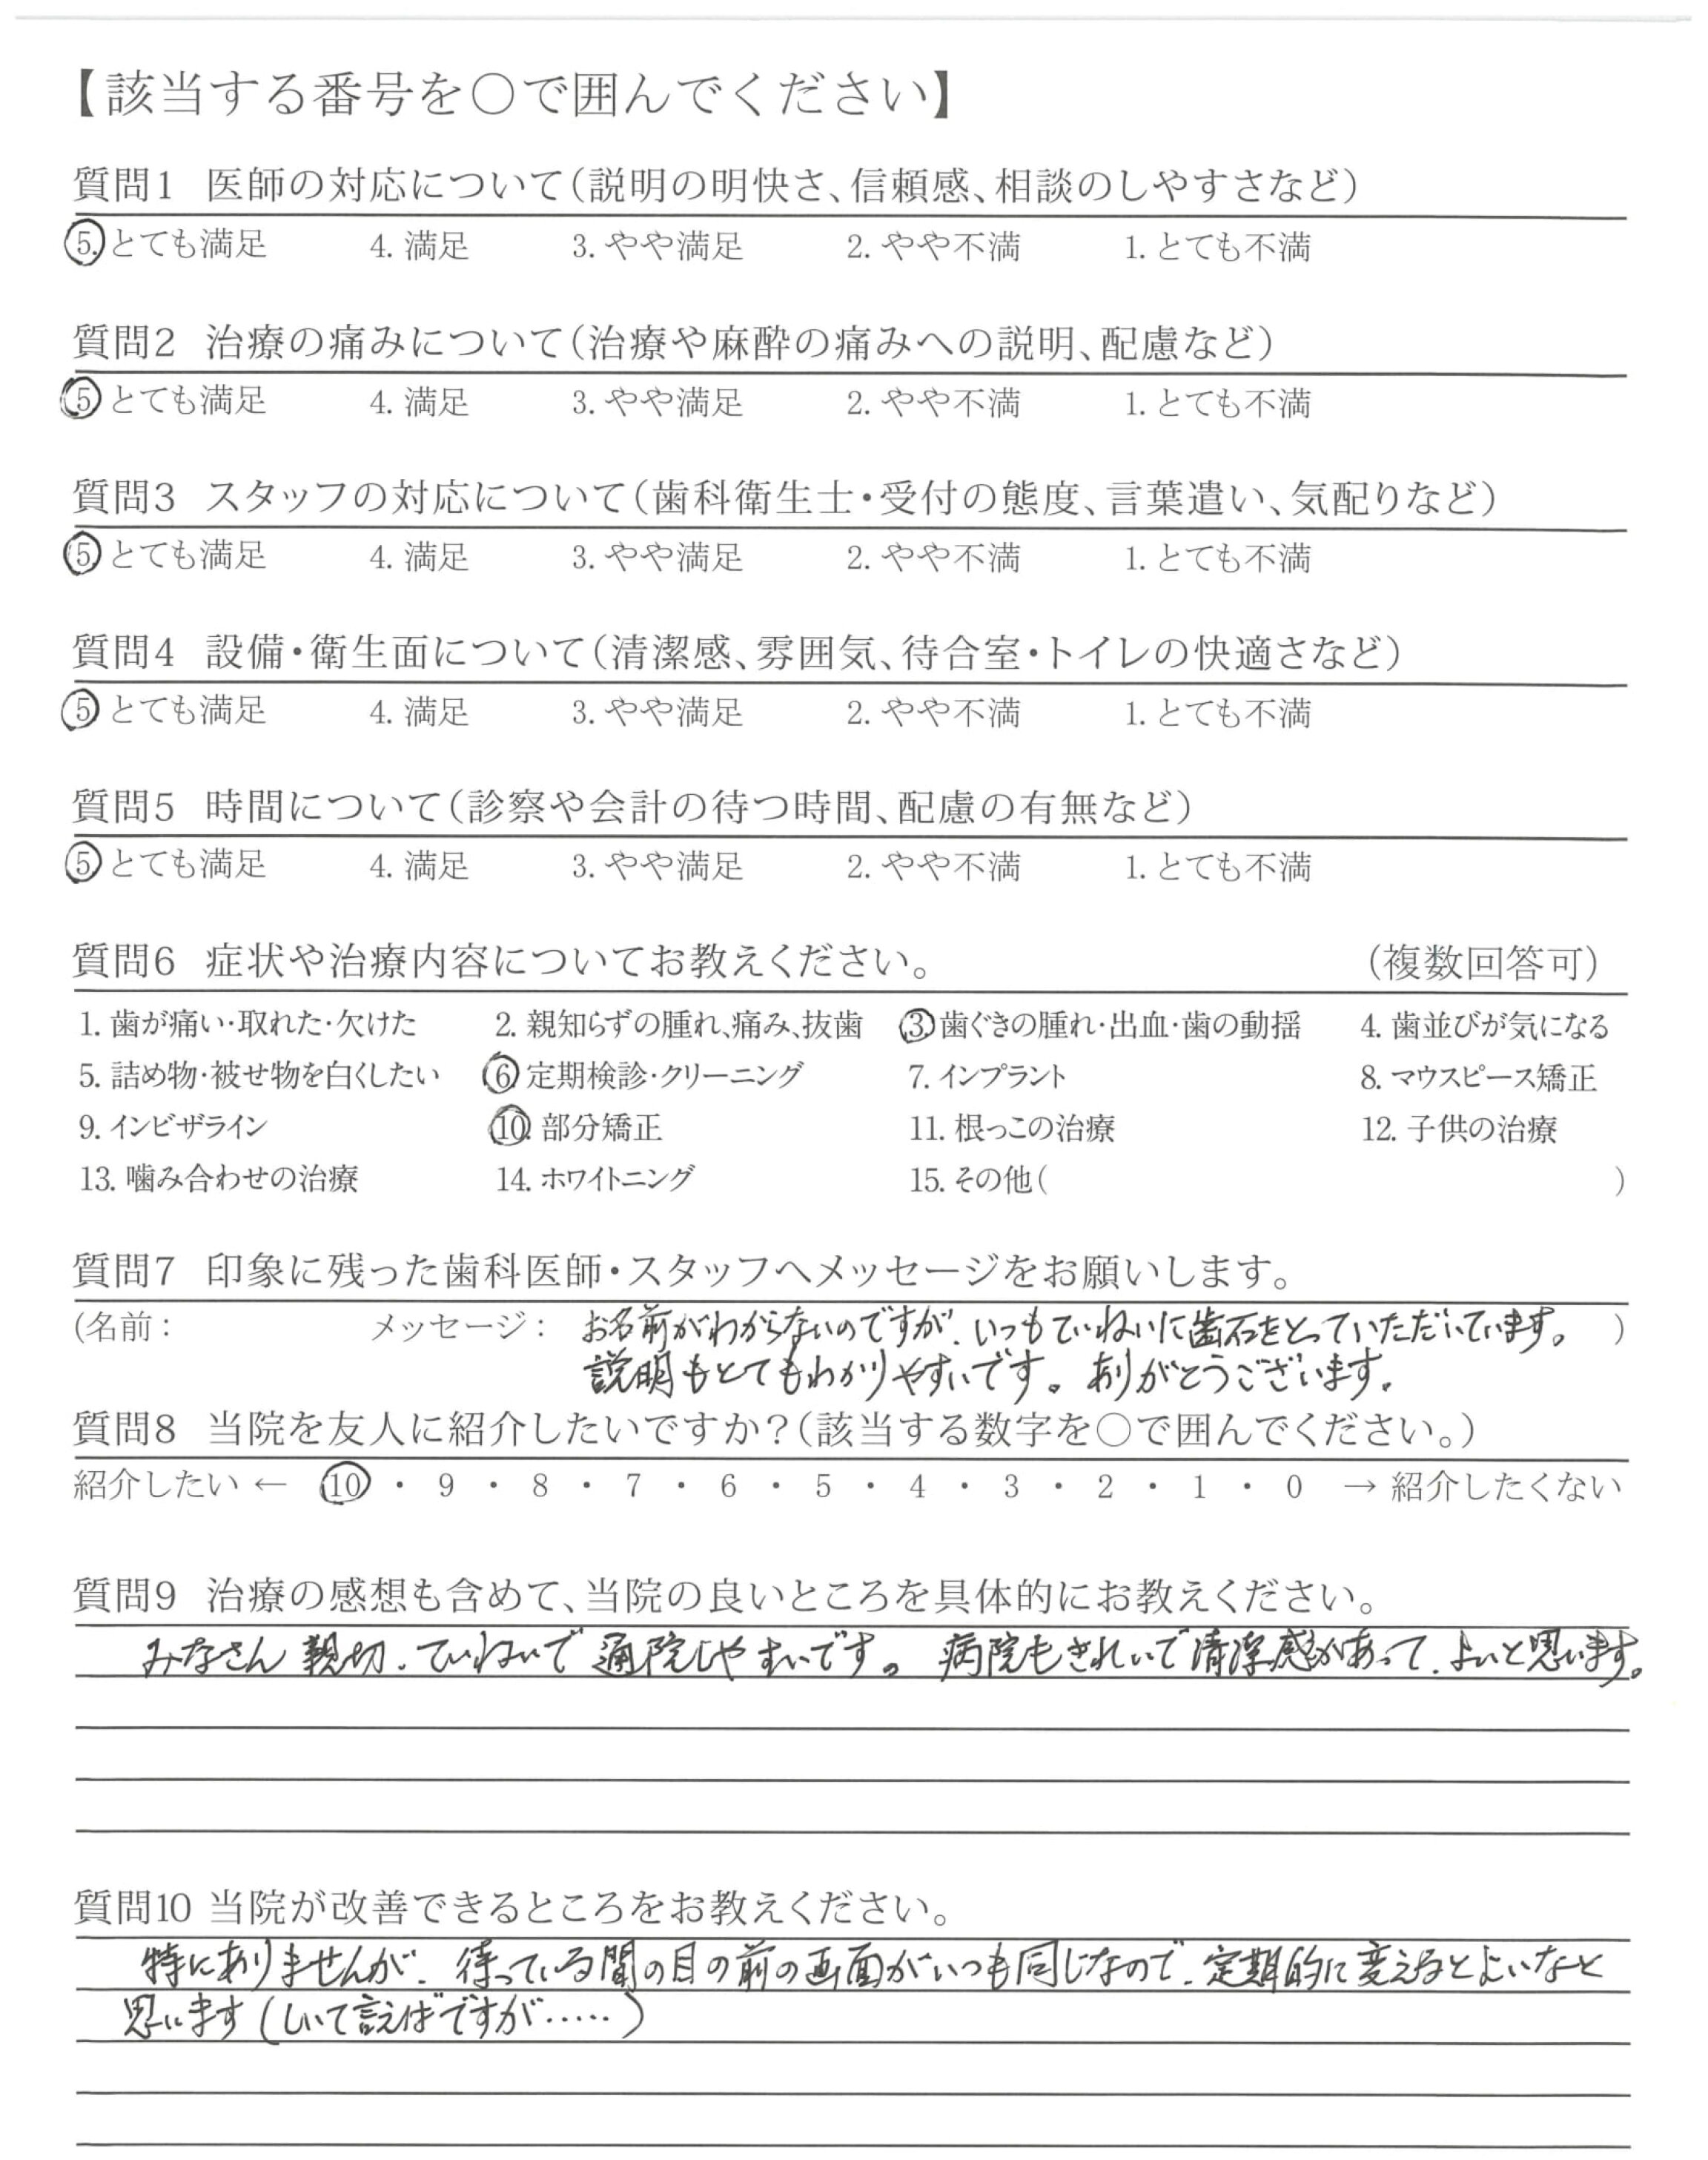 【該当する番号を○で囲んでください】
質問1 医師の対応について(説明の明快さ、信頼感、相談のしやすさなど)
5. とても満足 4. 満足 3. やや満足 2. やや不満 1. とても不満
質問2 治療の痛みについて(治療や麻酔の痛みへの説明、配慮など)
5 とても満足 4. 満足 3. やや満足 2. やや不満 1. とても不満
質問3 スタッフの対応について(歯科衛生士・受付の態度、言葉遣い、気配りなど)
5 とても満足 4. 満足 3. やや満足 2. やや不満 1. とても不満
質問4 設備・衛生面について(清潔感、雰囲気、待合室・トイレの快適さなど)
5 とても満足 4. 満足 3. やや満足 2. やや不満 1. とても不満
質問5 時間について(診察や会計の待つ時間、配慮の有無など)
5 とても満足 4. 満足 3. やや満足 2. やや不満 1. とても不満
質問6 症状や治療内容についてお教えください。 (複数回答可)
1. 歯が痛い・取れた・欠けた 2. 親知らずの腫れ、痛み、抜歯 3 歯ぐきの腫れ・出血・歯の動揺 4. 歯並びが気になる
5. 詰め物・被せ物を白くしたい 6 定期検診・クリーニング 7. インプラント 8. マウスピース矯正
9. インビザライン 10. 部分矯正 11. 根っこの治療 12. 子供の治療
13. 噛み合わせの治療 14. ホワイトニング 15. その他( )
質問7 印象に残った歯科医師・スタッフへメッセージをお願いします。
(名前: メッセージ: お名前がわからないのですが、いつもていねいに歯石をとっていただいています。 )
説明もとてもわかりやすいです。ありがとうございます。
質問8 当院を友人に紹介したいですか?(該当する数字を○で囲んでください。)
紹介したい ← 10 ・ 9 ・ 8 ・ 7 ・ 6 ・ 5 ・ 4 ・ 3 ・ 2 ・ 1 ・ 0 → 紹介したくない
質問9 治療の感想も含めて、当院の良いところを具体的にお教えください。
みなさん親切、ていねいで通院しやすいです。病院もきれいで清潔感があって、よいと思います。
質問10 当院が改善できるところをお教えください。
特にありませんが、待っている間の目の前の画面がいつも同じなので、定期的に変えるとよいなと
思います(しいて言えばですが……)